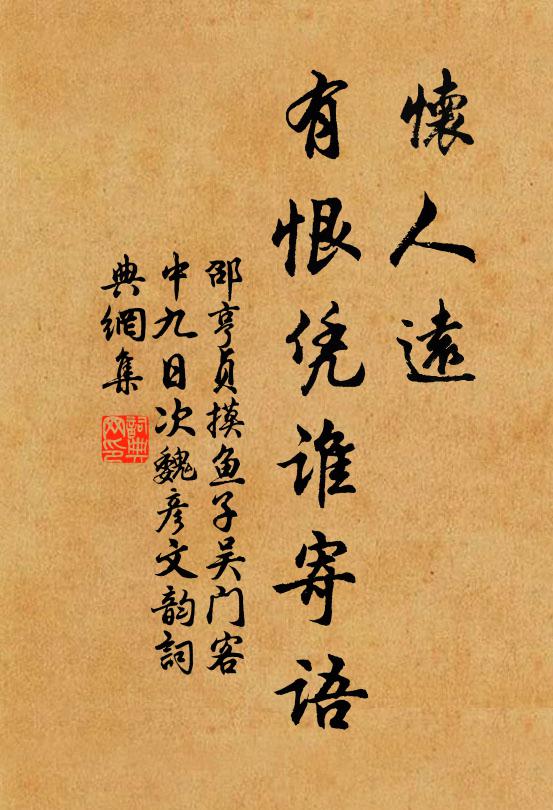 懷人遠
有恨凭谁寄語
邵亨貞摸鱼子吴门客
中九日次魏彦文韵詞
典網集
詞典网印